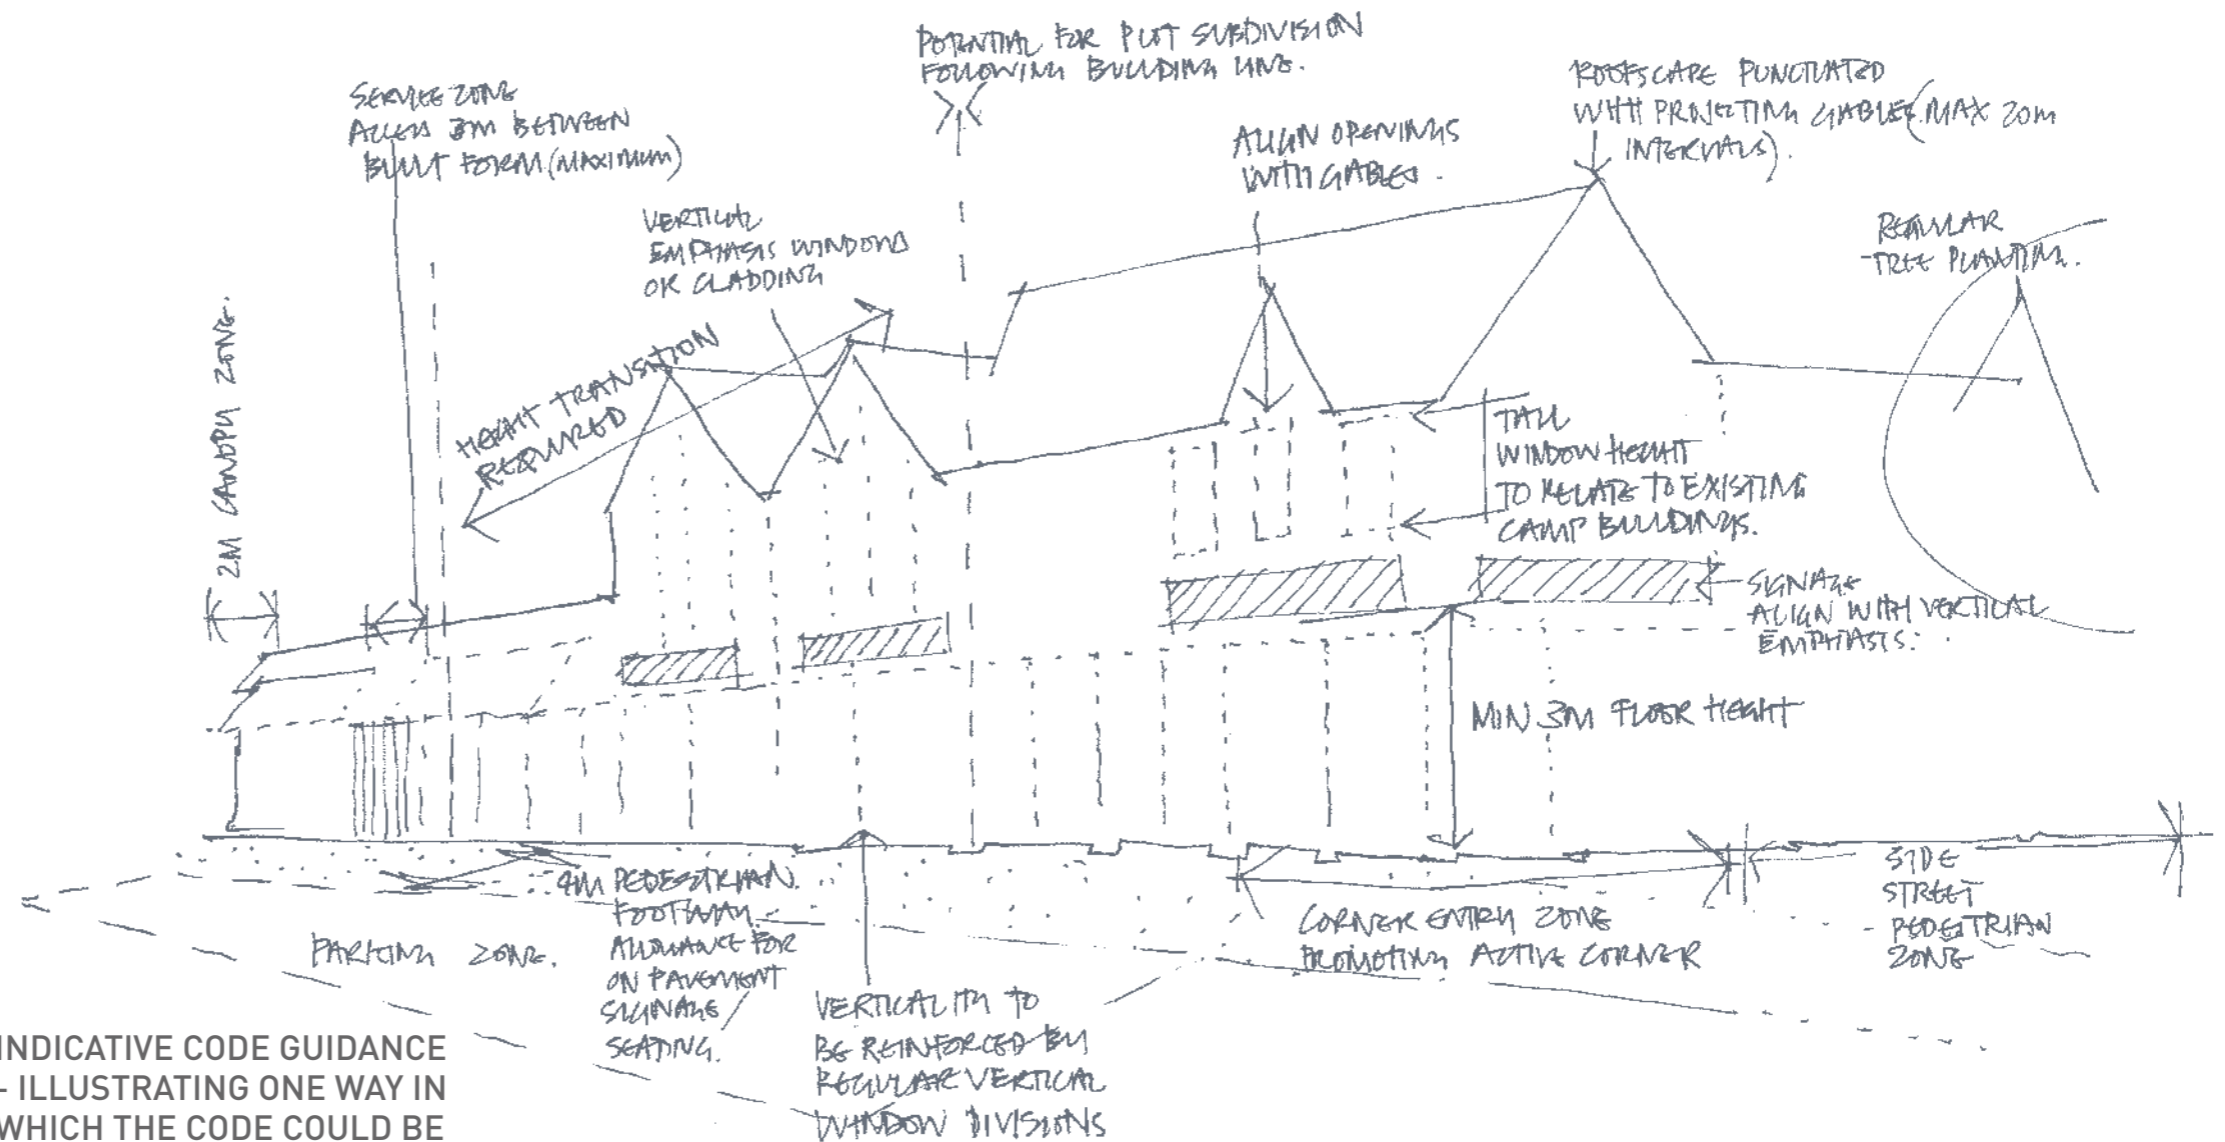 POTENTIAL FOR PLOT SUBDIVISION
FOLLOWING BUILDING LINE.
SERVICE ZONE
ACCESS 3M BETWEEN
BUILT FORM (MAXIMUM)
ROOFSCAPE PUNCTUATED
WITH PROJECTING GABLES (MAX 20m
INTERVALS).
ALIGN OPENINGS
WITH GABLES.
VERTICAL
EMPHASIS WINDOWS
OR CLADDING
REGULAR
TREE PLANTING.
2M CANOPY ZONE.
HEIGHT TRANSITION
REQUIRED
TALL
WINDOW HEIGHT
TO RELATE TO EXISTING
CAMP BUILDINGS.
SIGNAGE
ALIGN WITH VERTICAL
EMPHASIS.
MIN 3M FLOOR HEIGHT
4M PEDESTRIAN
FOOTWAY
ALLOWANCE FOR
ON PAVEMENT
SIGNAGE
SEATING.
PARKING ZONE.
CORNER ENTRY ZONE
PROMOTING ACTIVE CORNER
SIDE
STREET
PEDESTRIAN
ZONE
VERTICALITY TO
BE REINFORCED BY
REGULAR VERTICAL
WINDOW DIVISIONS
INDICATIVE CODE GUIDANCE
- ILLUSTRATING ONE WAY IN
WHICH THE CODE COULD BE